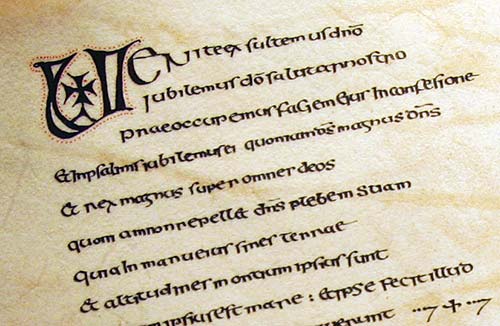 VENITE exsultemus dnō
Iubilemus dō salutari nostro
praeoccupemus faciem eius In confessione
et In psalmis iubilemus ei quoniam ds̄ magnus dn̄s
et rex magnus super omnes deos
quoniam non repellet dn̄s plebem suam
quia In manu eius fines terrae
et altitudines montium ipsius sunt
ipsius est mare : et ipse fecit illud